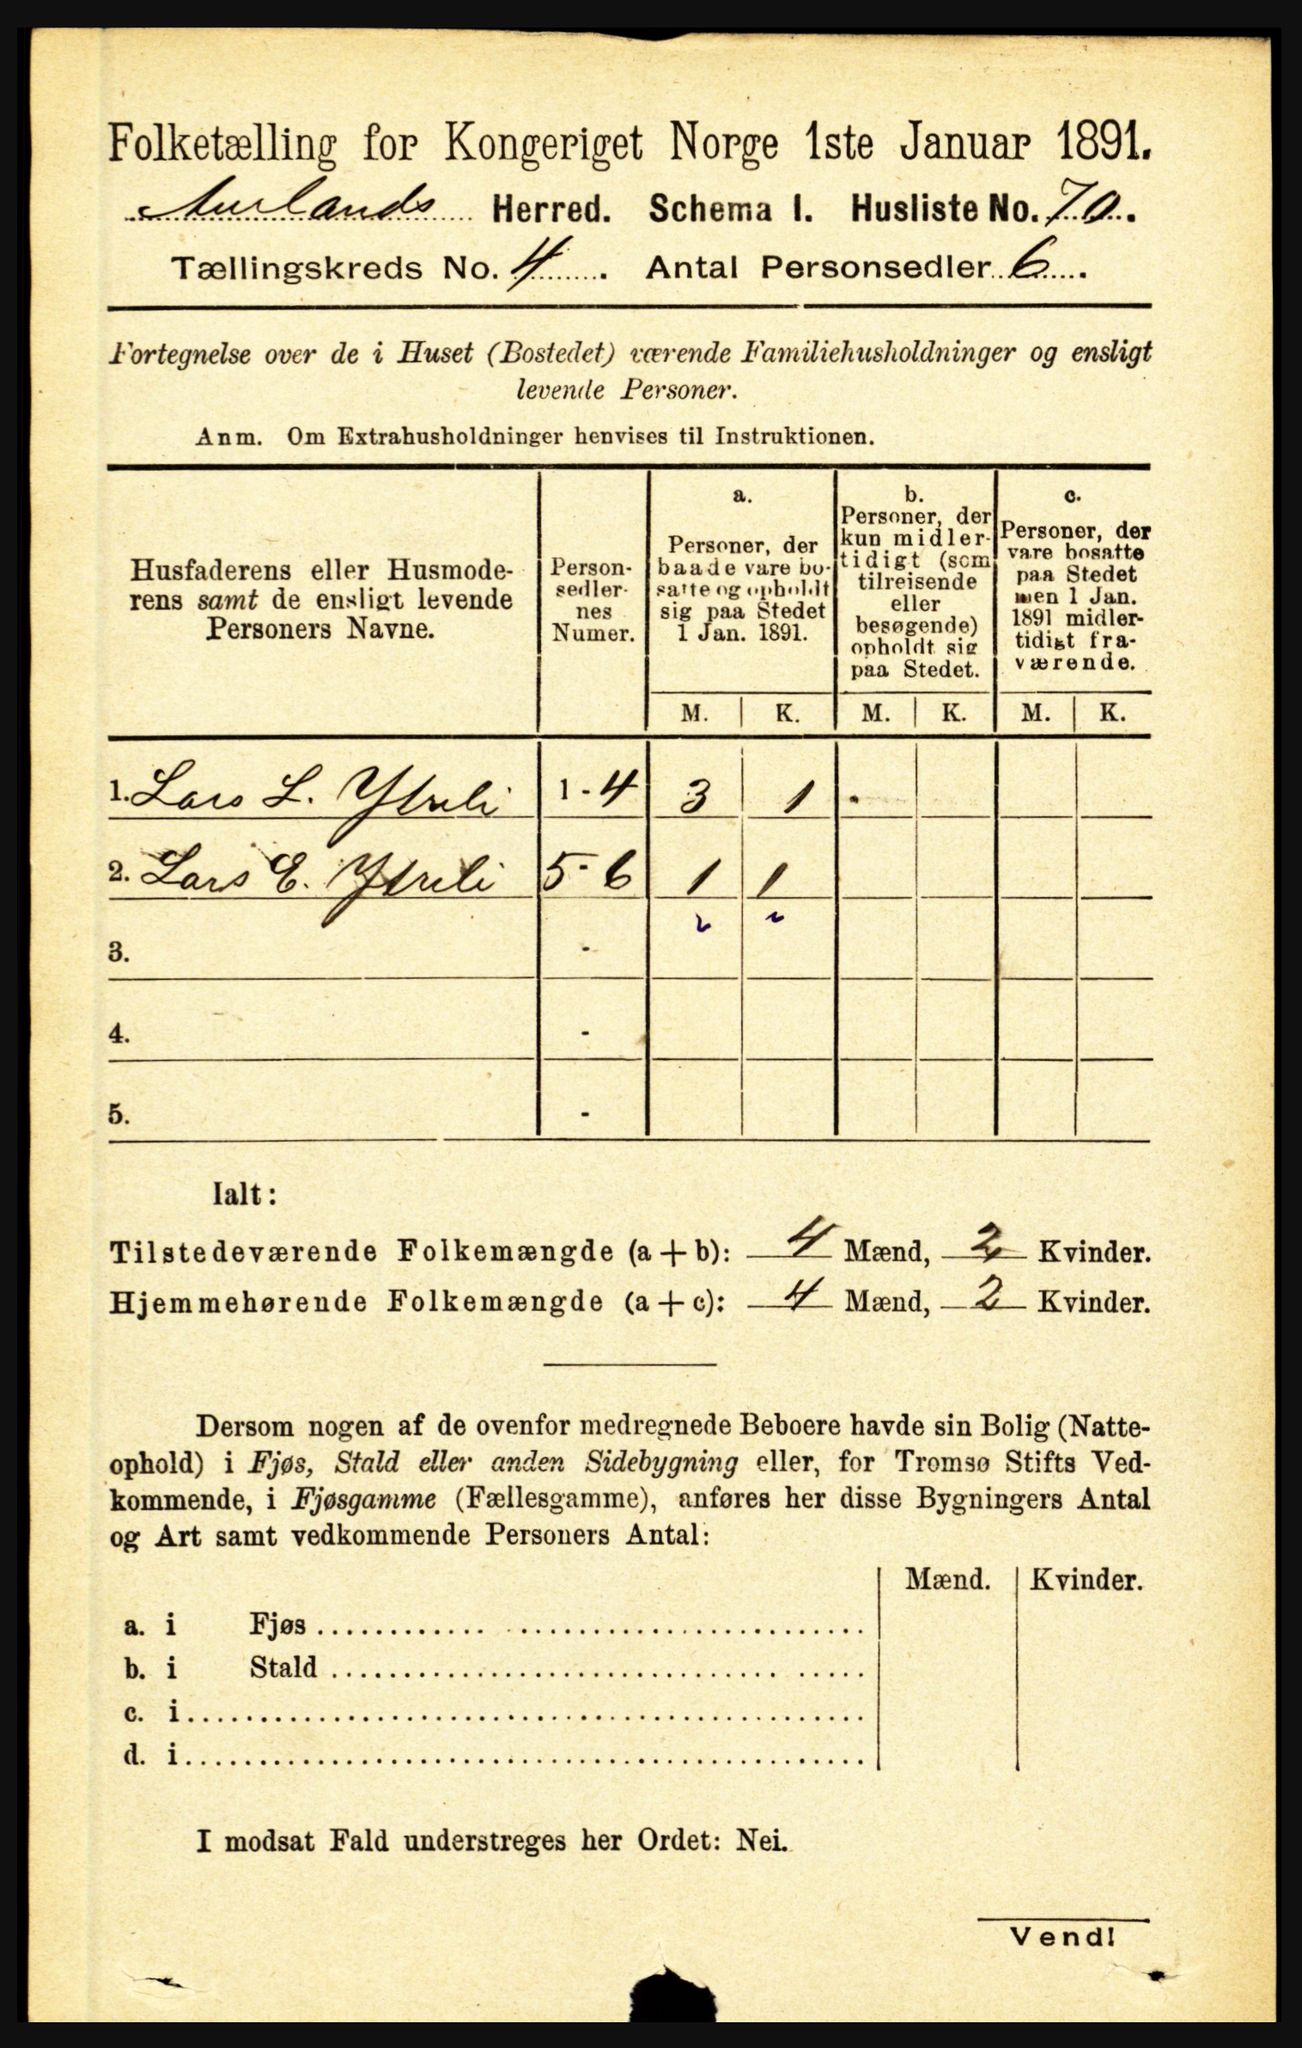 Folketælling for Kongeriget Norge 1ste Januar 1891.
Aurlands Herred. Schema I. Husliste No. 70.
Tællingskreds No. 4. Antal Personsedler 6.
Fortegnelse over de i Huset (Bostedet) værende Familiehusholdninger og ensligt
levende Personer.
Anm. Om Extrahusholdninger henvises til Instruktionen.
Husfaderens eller Husmode-
rens samt de ensligt levende
Personers Navne.
Person-
sedler-
nes
Numer.
a.
Personer, der
baade vare bo-
satte og opholdt
sig paa Stedet
1 Jan. 1891.
b.
Personer, der
kun midler-
tidigt (som
tilreisende
eller
besøgende)
opholdt sig
paa Stedet.
c.
Personer, der
vare bosatte
paa Stedet
men 1 Jan.
1891 midler-
tidigt fra-
værende.
M. K. M. K. M. K.
1. Lars L. Ytreli 1-4 3 1
2. Lars E. Ytreli 5-6 1 1
3. -
4. -
5. -
Ialt:
Tilstedeværende Folkemængde (a+b): 4 Mænd, 2 Kvinder.
Hjemmehørende Folkemængde (a+c): 4 Mænd, 2 Kvinder.
Dersom nogen af de ovenfor medregnede Beboere havde sin Bolig (Natte-
ophold) i Fjøs, Stald eller anden Sidebygning eller, for Tromsø Stifts Ved-
kommende, i Fjøsgamme (Fællesgamme), anføres her disse Bygningers Antal
og Art samt vedkommende Personers Antal:
Mænd. Kvinder.
a. i Fjøs
b. i Stald
c. i
d. i
I modsat Fald understreges her Ordet: Nei.
Vend!